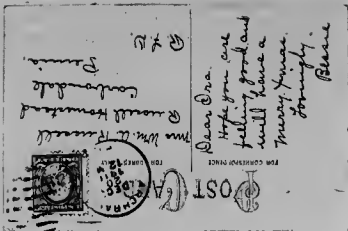 POST CARD
FOR CORRESPONDENCE
FOR ADDRESS ONLY
Dear Ora.
Hope you are
feeling good and
will have a
Merry Xmas.
Lovingly.
Bessie
Mrs Wm. A. Russell
Russell Homestead
Carbondale
Penna.
DEC